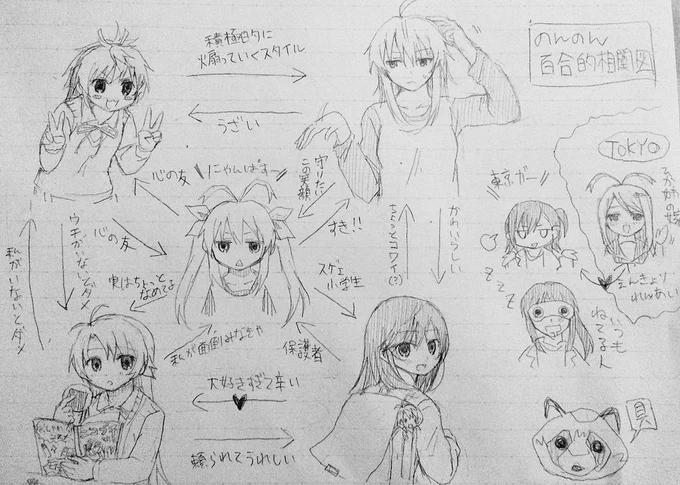 のんのん
百合的相関図
積極的に
火煽っていくスタイル
うざい
TOKYO
ひか姉の妹
東京ガー
えんきょり
れんあい
心の友
にゃんぱすー
守りたい
この笑顔
すき!!
ちょっとコワイ(?)
かわいらしい
ウチがいないとダメ
私がいないとダメ
心の友
実はちょっと
なめてる
スゲェ
小学生
私が面倒みなきゃ
保護者
大好きすぎて辛い
頼られてうれしい
ZZZ
いつも
ねてる人
具